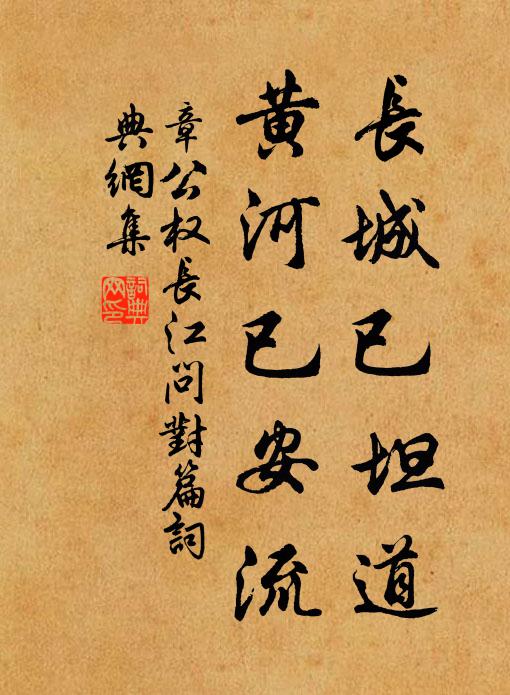 長城已坦道
黃河已安流
章公权長江問對篇詞
典網集
詞典
网印